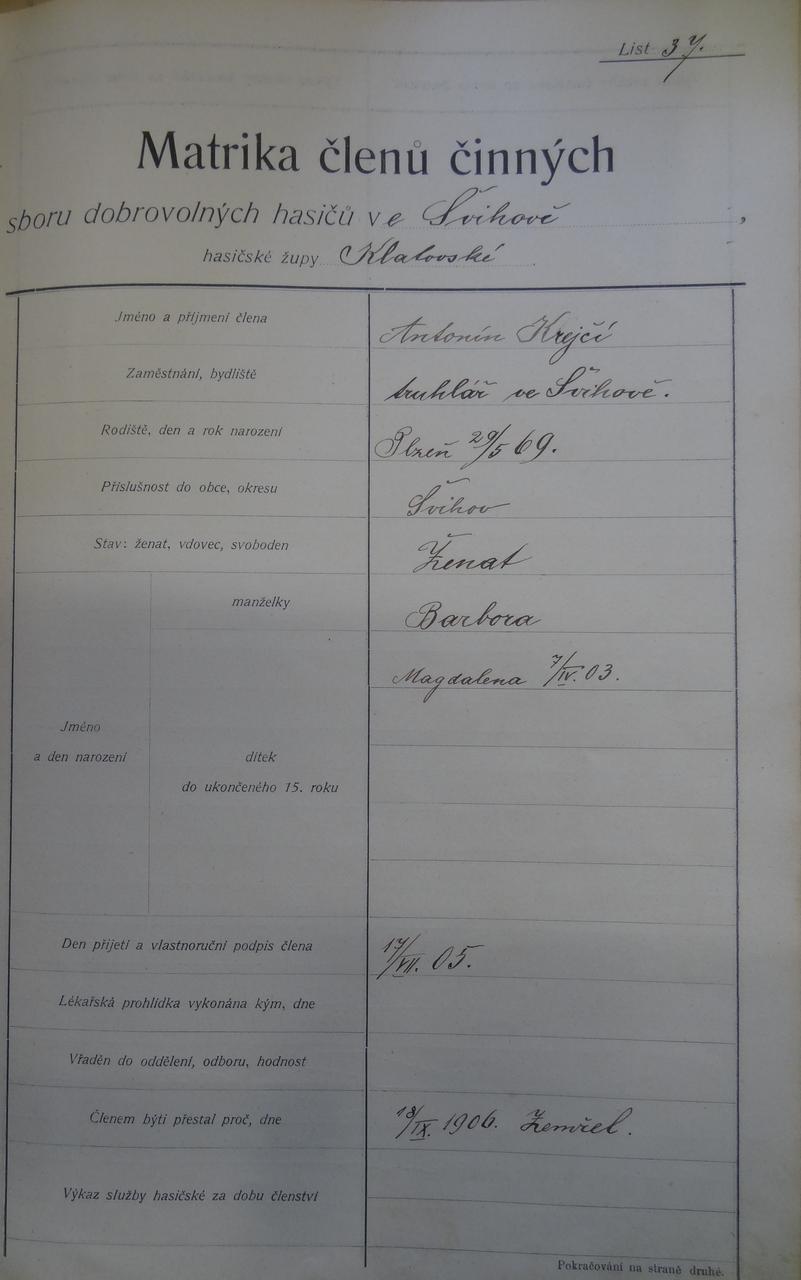 List 37.
Matrika členů činných
sboru dobrovolných hasičů ve Švihově,
hasičské župy Klatovské
Jméno a příjmení člena Antonín Krejčí
Zaměstnání, bydliště truhlář ve Švihově.
Rodiště, den a rok narození Plzeň 29/5 69.
Příslušnost do obce, okresu Švihov
Stav: ženat, vdovec, svoboden Ženat
manželky Barbora
Magdalena 7/IV. 03.
Jméno
a den narození dítek
do ukončeného 15. roku
Den přijetí a vlastnoruční podpis člena 17/VII. 05.
Lékařská prohlídka vykonána kým, dne
Vřaděn do oddělení, odboru, hodnost
Členem býti přestal proč, dne 18/IX. 1906. Zemřel.
Výkaz služby hasičské za dobu členství
Pokračování na straně druhé.